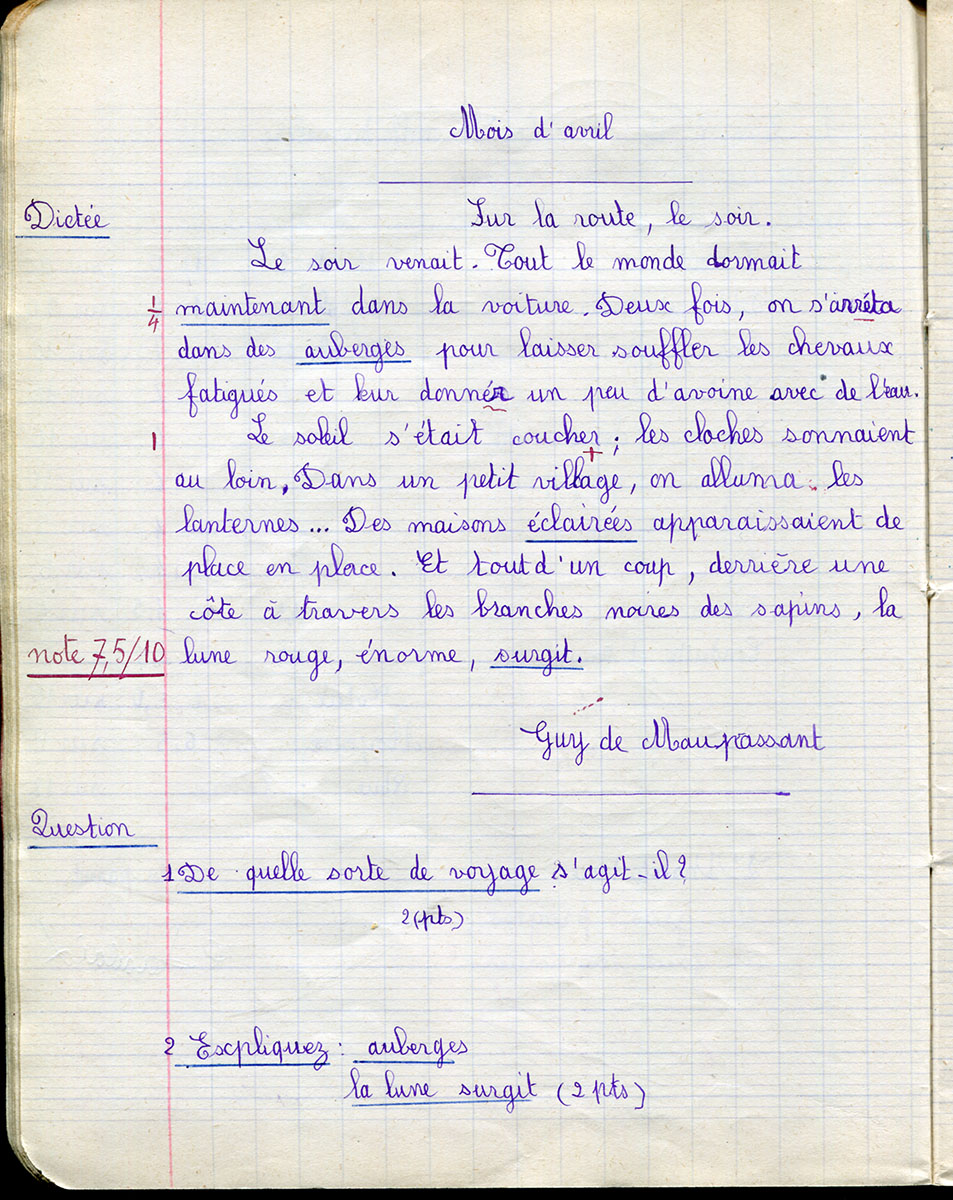 Mois d'avril
Dictée
Sur la route, le soir.
Le soir venait. Tout le monde dormait
1/4 maintenant dans la voiture. Deux fois, on s'arrêta
dans des auberges pour laisser souffler les chevaux
fatigués et leur donner un peu d'avoine avec de l'eau.
1 Le soleil s'était coucher ; les cloches sonnaient
au loin. Dans un petit village, on alluma les
lanternes... Des maisons éclairées apparaissaient de
place en place. Et tout d'un coup, derrière une
côte à travers les branches noires des sapins, la
note 7,5/10 lune rouge, énorme, surgit.
Guy de Maupassant
Question
1 De quelle sorte de voyage s'agit-il ?
2 (pts)
2 Escpliquez : auberges
la lune surgit (2 pts)